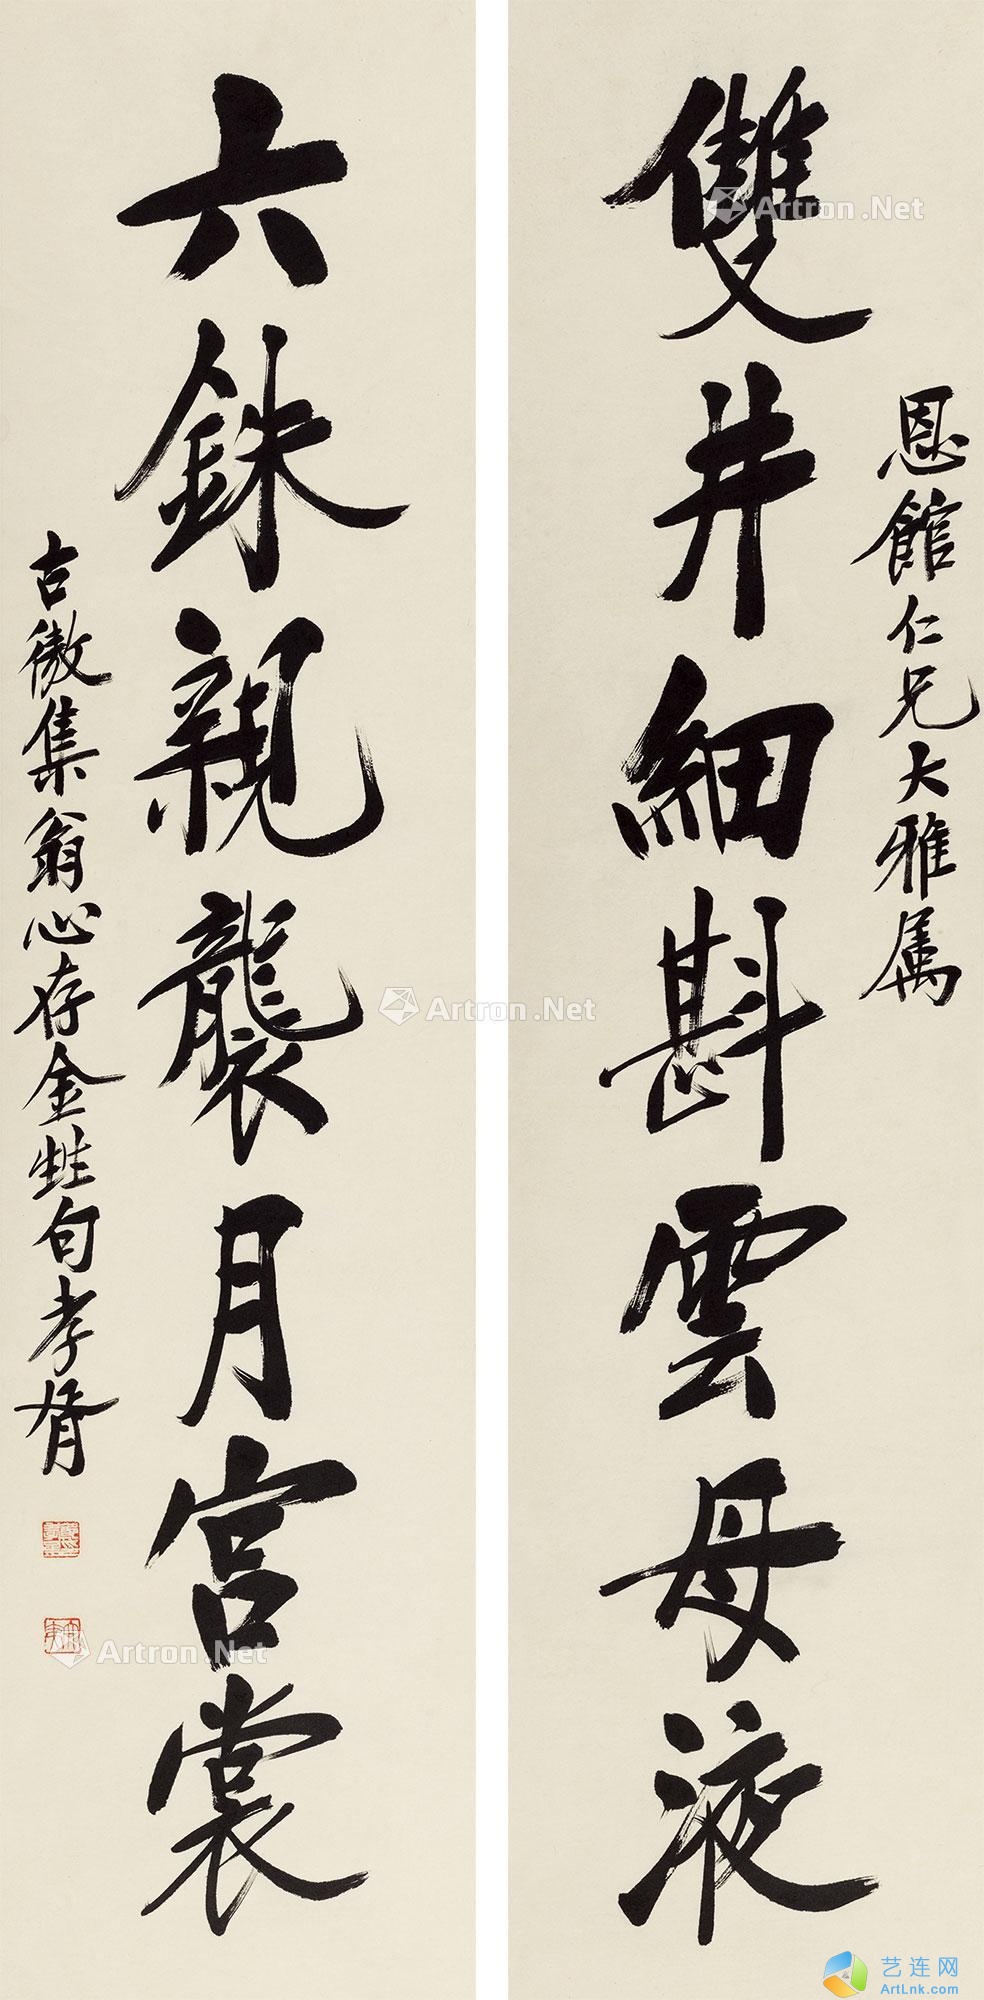 恩館仁兄大雅属
雙井細斟雲母液
六銖親襲月宫裳
古微集翁心存金甡句孝胥
Artron.Net
Artron.Net
Artron.Net
艺连网
ArtLnk.com